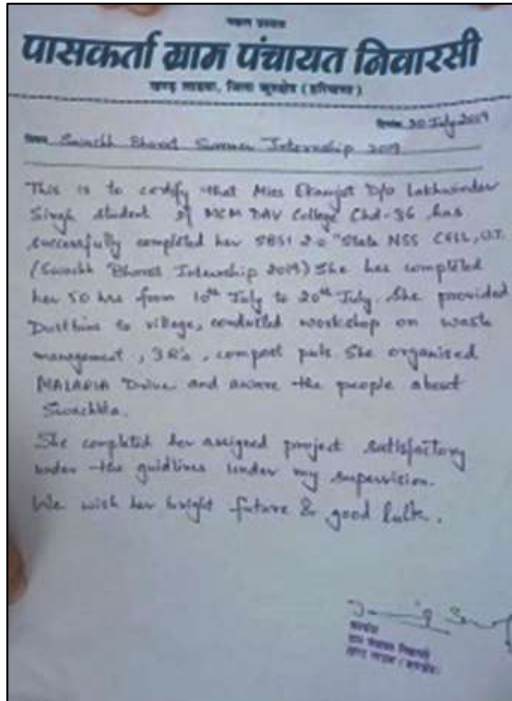 पासकर्ता ग्राम पंचायत निवारसी
खण्ड लाडवा, जिला कुरुक्षेत्र (हरियाणा)
20 July 2019
Swachh Bharat Summer Internship 2019
This is to certify that Miss Ekamjot D/o Lakhwinder
Singh student of MCM DAV College Chd-36 has
successfully completed her SBSI 2.0 "State NSS CELL, U.T.
(Swachh Bharat Internship 2019) She has completed
her 50 hrs from 10th July to 20th July. She provided
Dustbins to village, conducted workshop on waste
management, 3R's, compost pits. She organised
MALARIA Drive and aware the people about
Swachhta.
She completed her assigned project satisfactory
under the guidlines under my supervision.
We wish her bright future & good lulk.
सरपंच
ग्राम पंचायत निवारसी
खण्ड लाडवा